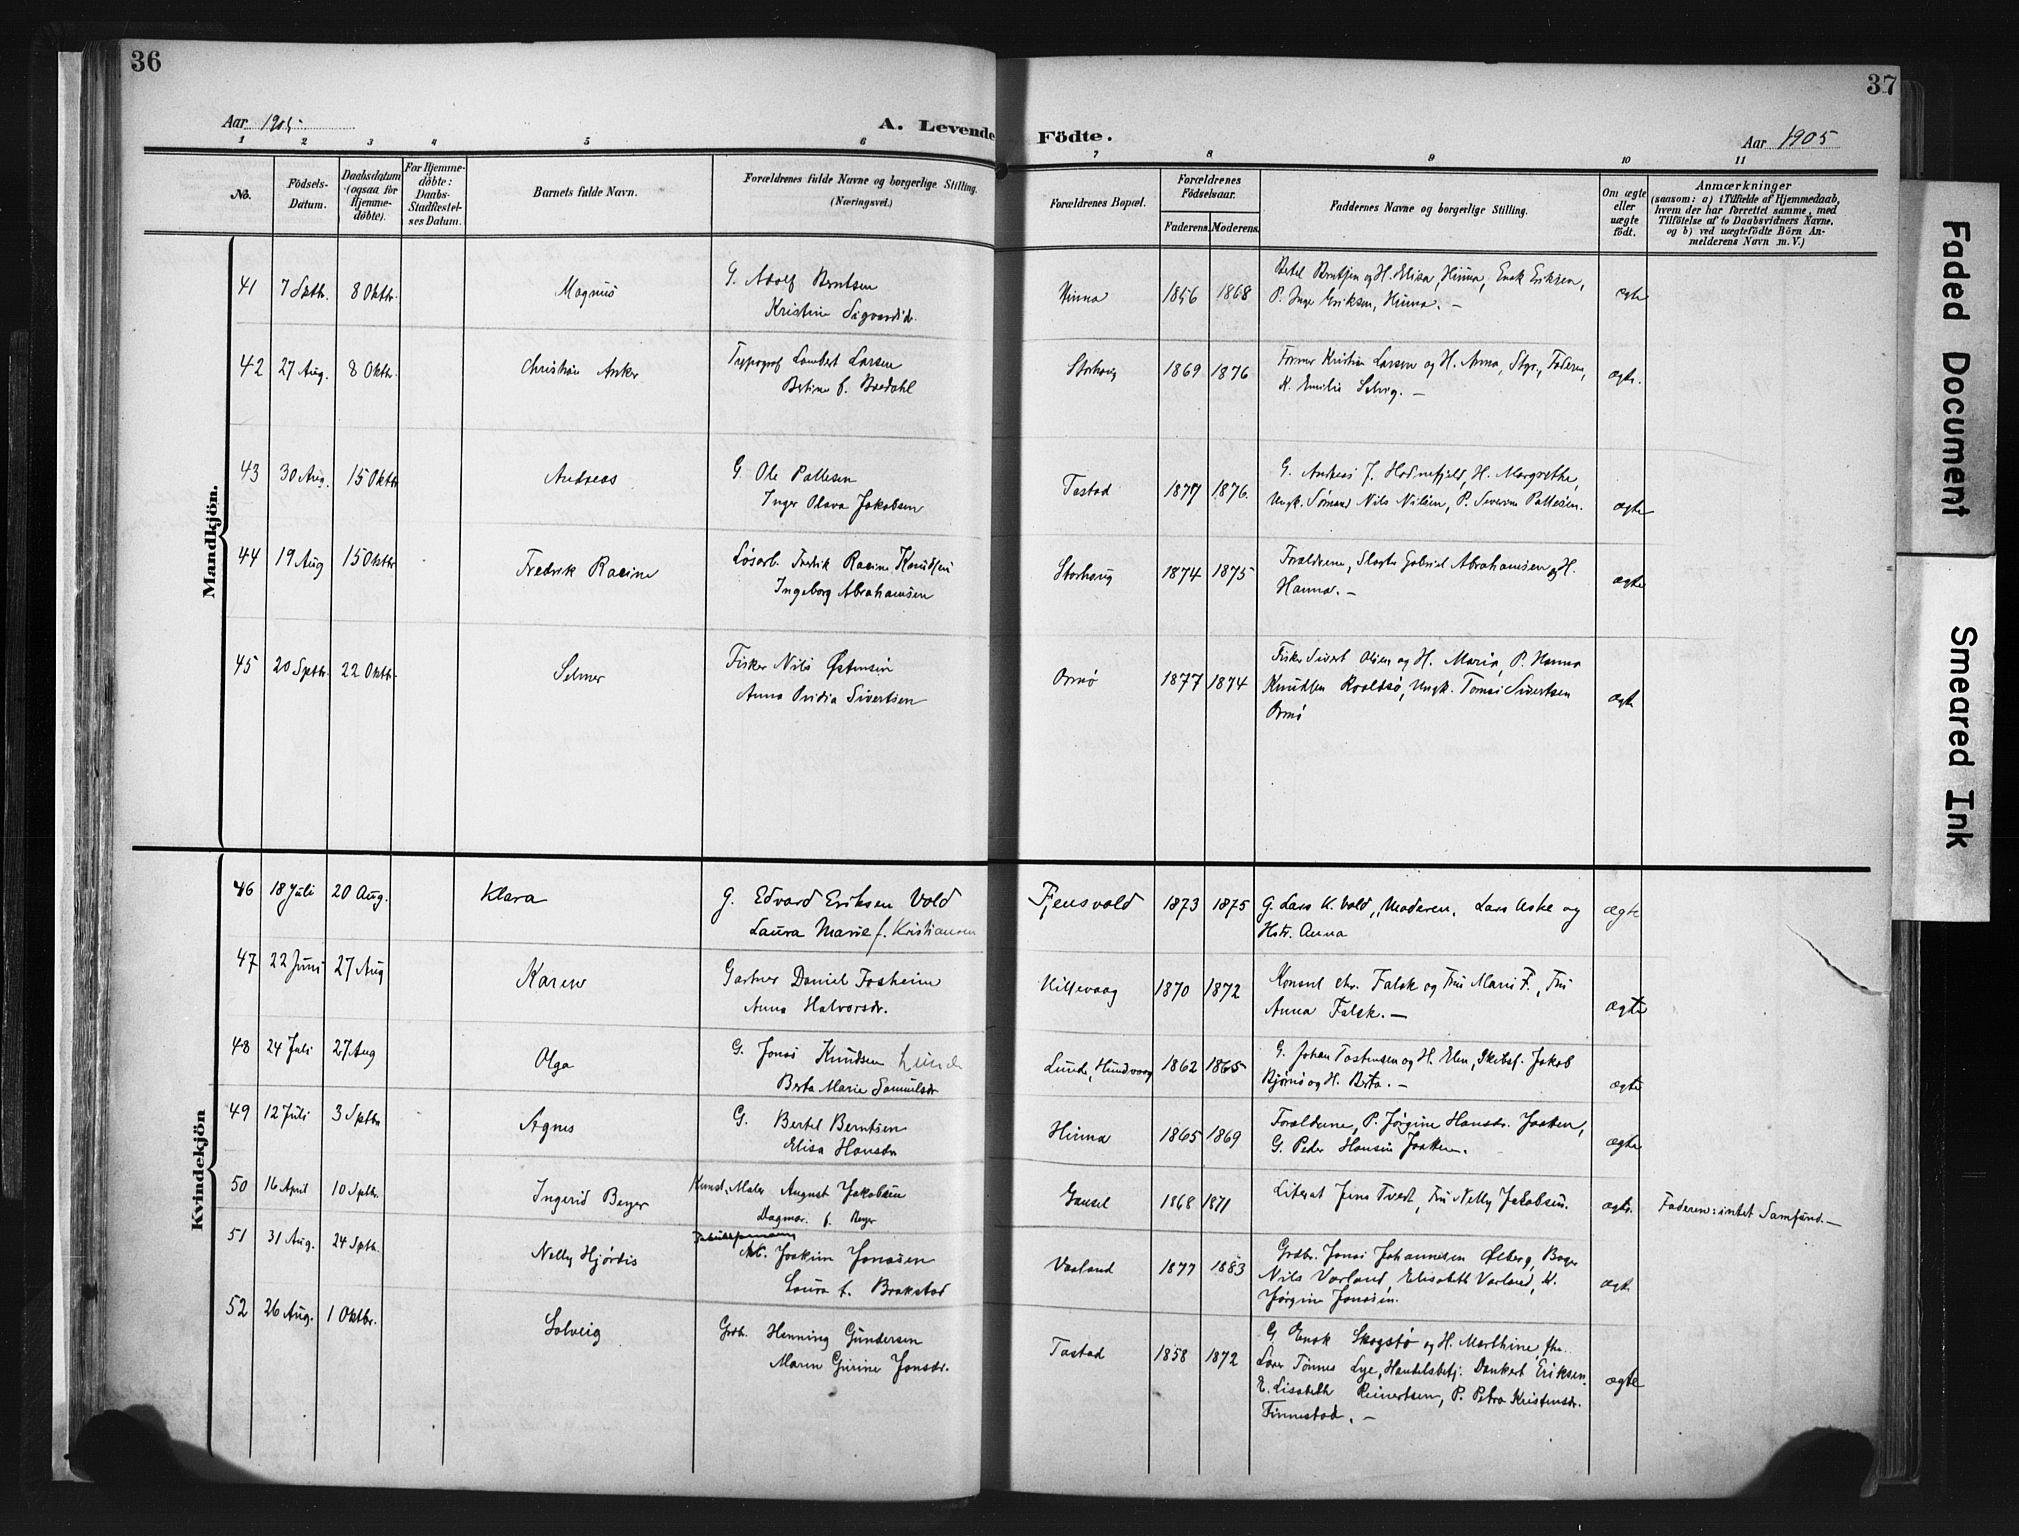 36
Aar 1905
A. Levende
1 2 3 4 5 6
No.
Födsels-Datum.
Daabsdatum (ogsaa for Hjemme-döbte).
For Hjemme-döbte: Daabs-Stadfæstel-ses Datum.
Barnets fulde Navn.
Forældrenes fulde Navne og borgerlige Stilling. (Næringsvei.)
Födte.
37
Aar 1905
7 8 9 10 11
Forældrenes Bopæl.
Forældrenes Födselsaar.
Faderens. Moderens.
Faddernes Navne og borgerlige Stilling.
Om ægte eller uægte födt.
Anmærkninger
(saasom: a) i Tilfælde af Hjemmedaab,
hvem der har forrettet samme, med
Tilföielse af to Daabsvidners Navne.
og b) ved uægtefödte Börn An-
melderens Navn m. V.)
Mandkjön.
41 7 Septb. 8 Oktbr. Magnus G. Adolf Berntsen Hinna 1856 1868 Betel Berntsen og H. Elisa, Hinna, Enok Eriksen, ægte
Kristine Sigvardsdr. P. Inger Eriksen, Hinna. —
42 27 Aug. 8 Oktbr. Christian Anker Typograf Lambert Larsen Storhaug 1869 1876 Former Kristian Larsen og H. Anna, Faderen, ægte.
Bertine f. Bredahl K. Emilie Selvig. —
43 30 Aug. 15 Oktbr Andreas G. Ole Pallesen Tastad 1877 1876. G. Andreas J. Hodnefjeld, H. Margrethe, ægte
Inger Olava Jakobsen Ungk. Sømand Nils Nilsen, P. Severine Pallesen.
44 19 Aug 15 Oktbr Fredrik Racine Løsarb. Fredrik Racine Knudsen Storhaug 1874 1875 Forældrene, Slagter Gabriel Abrahamsen og H. ægte
Ingeborg Abrahamsen Hanna. —
45 20 Septbr. 22 Oktbr. Selmer Fisker Nils Østensen Ormø 1877 1874 Fisker Sivert Olsen og H. Maria, P. Hanna ægte
Anna Ovidia Sivertsen Knudsen Roaldsø, Ungk. Tomas Sivertsen
Ormø
Kvindekjön
46 18 Juli 20 Aug. Klara G. Edvard Eriksen Vold Tjensvold 1873 1875 G. Lars K. Vold, Moderen, Lars Aske og ægte
Laura Marie f. Kristiansen Hstr. Anna
47 22 Juni 27 Aug Karen Gartner Daniel Fosheim Hillevaag 1870 1872 Konsul Chr. Falck og Fru Marie F., Fru ægte
Anna Halvorsdr. Anna Falck. —
48 24 Juli 27 Aug Olga G. Jonas Knudsen Lunde Lunde, Hundvaag 1862 1865 G. Johan Tostensen og H. Elen, Skibsf. Jakob ægte
Berta Marie Samuelsdr Bjørnø og H. Berta. —
49 12 Juli 3 Septbr Agnes G. Bertel Berntsen Hinna 1865 1869 Forældrene, P. Jørgine Hansdr. Jaaken, ægte
Elisa Hansdr G. Peder Hansen Jaaken.
50 16 April 10 Septbr. Ingerid Beyer Kunst. Maler August Jakobsen Gausel 1868 1871 Literat Jens Tvedt, Fru Nelly Jakobsen. ægte. Faderen: intet Samfund. —
Dagmar f. Beyer
51 31 Aug. 24 Septb. Nelly Hjørdis Joakim Jonasen Vaaland 1877 1883 Grdbr. Jonas Johannesen Øeberg, Bager ægte.
Laura f. Brakstad Nils Varland, Elisabeth Varland, K.
Jørgine Jonasen.
52 26 Aug. 1 Oktbr. Solveig Grdb. Henning Gundersen Tastad 1858 1872 G. Enok Skogstø og H. Marthine, fhv. ægte
Maren Gurine Jonsdr. Lærer Tønnes Lye, Handelsbetj. Dankert Eriksen.
E. Lisabeth Reinertsen, P. Petra Kristensdr.
Finnestad. —
Faded Document
Smeared Ink